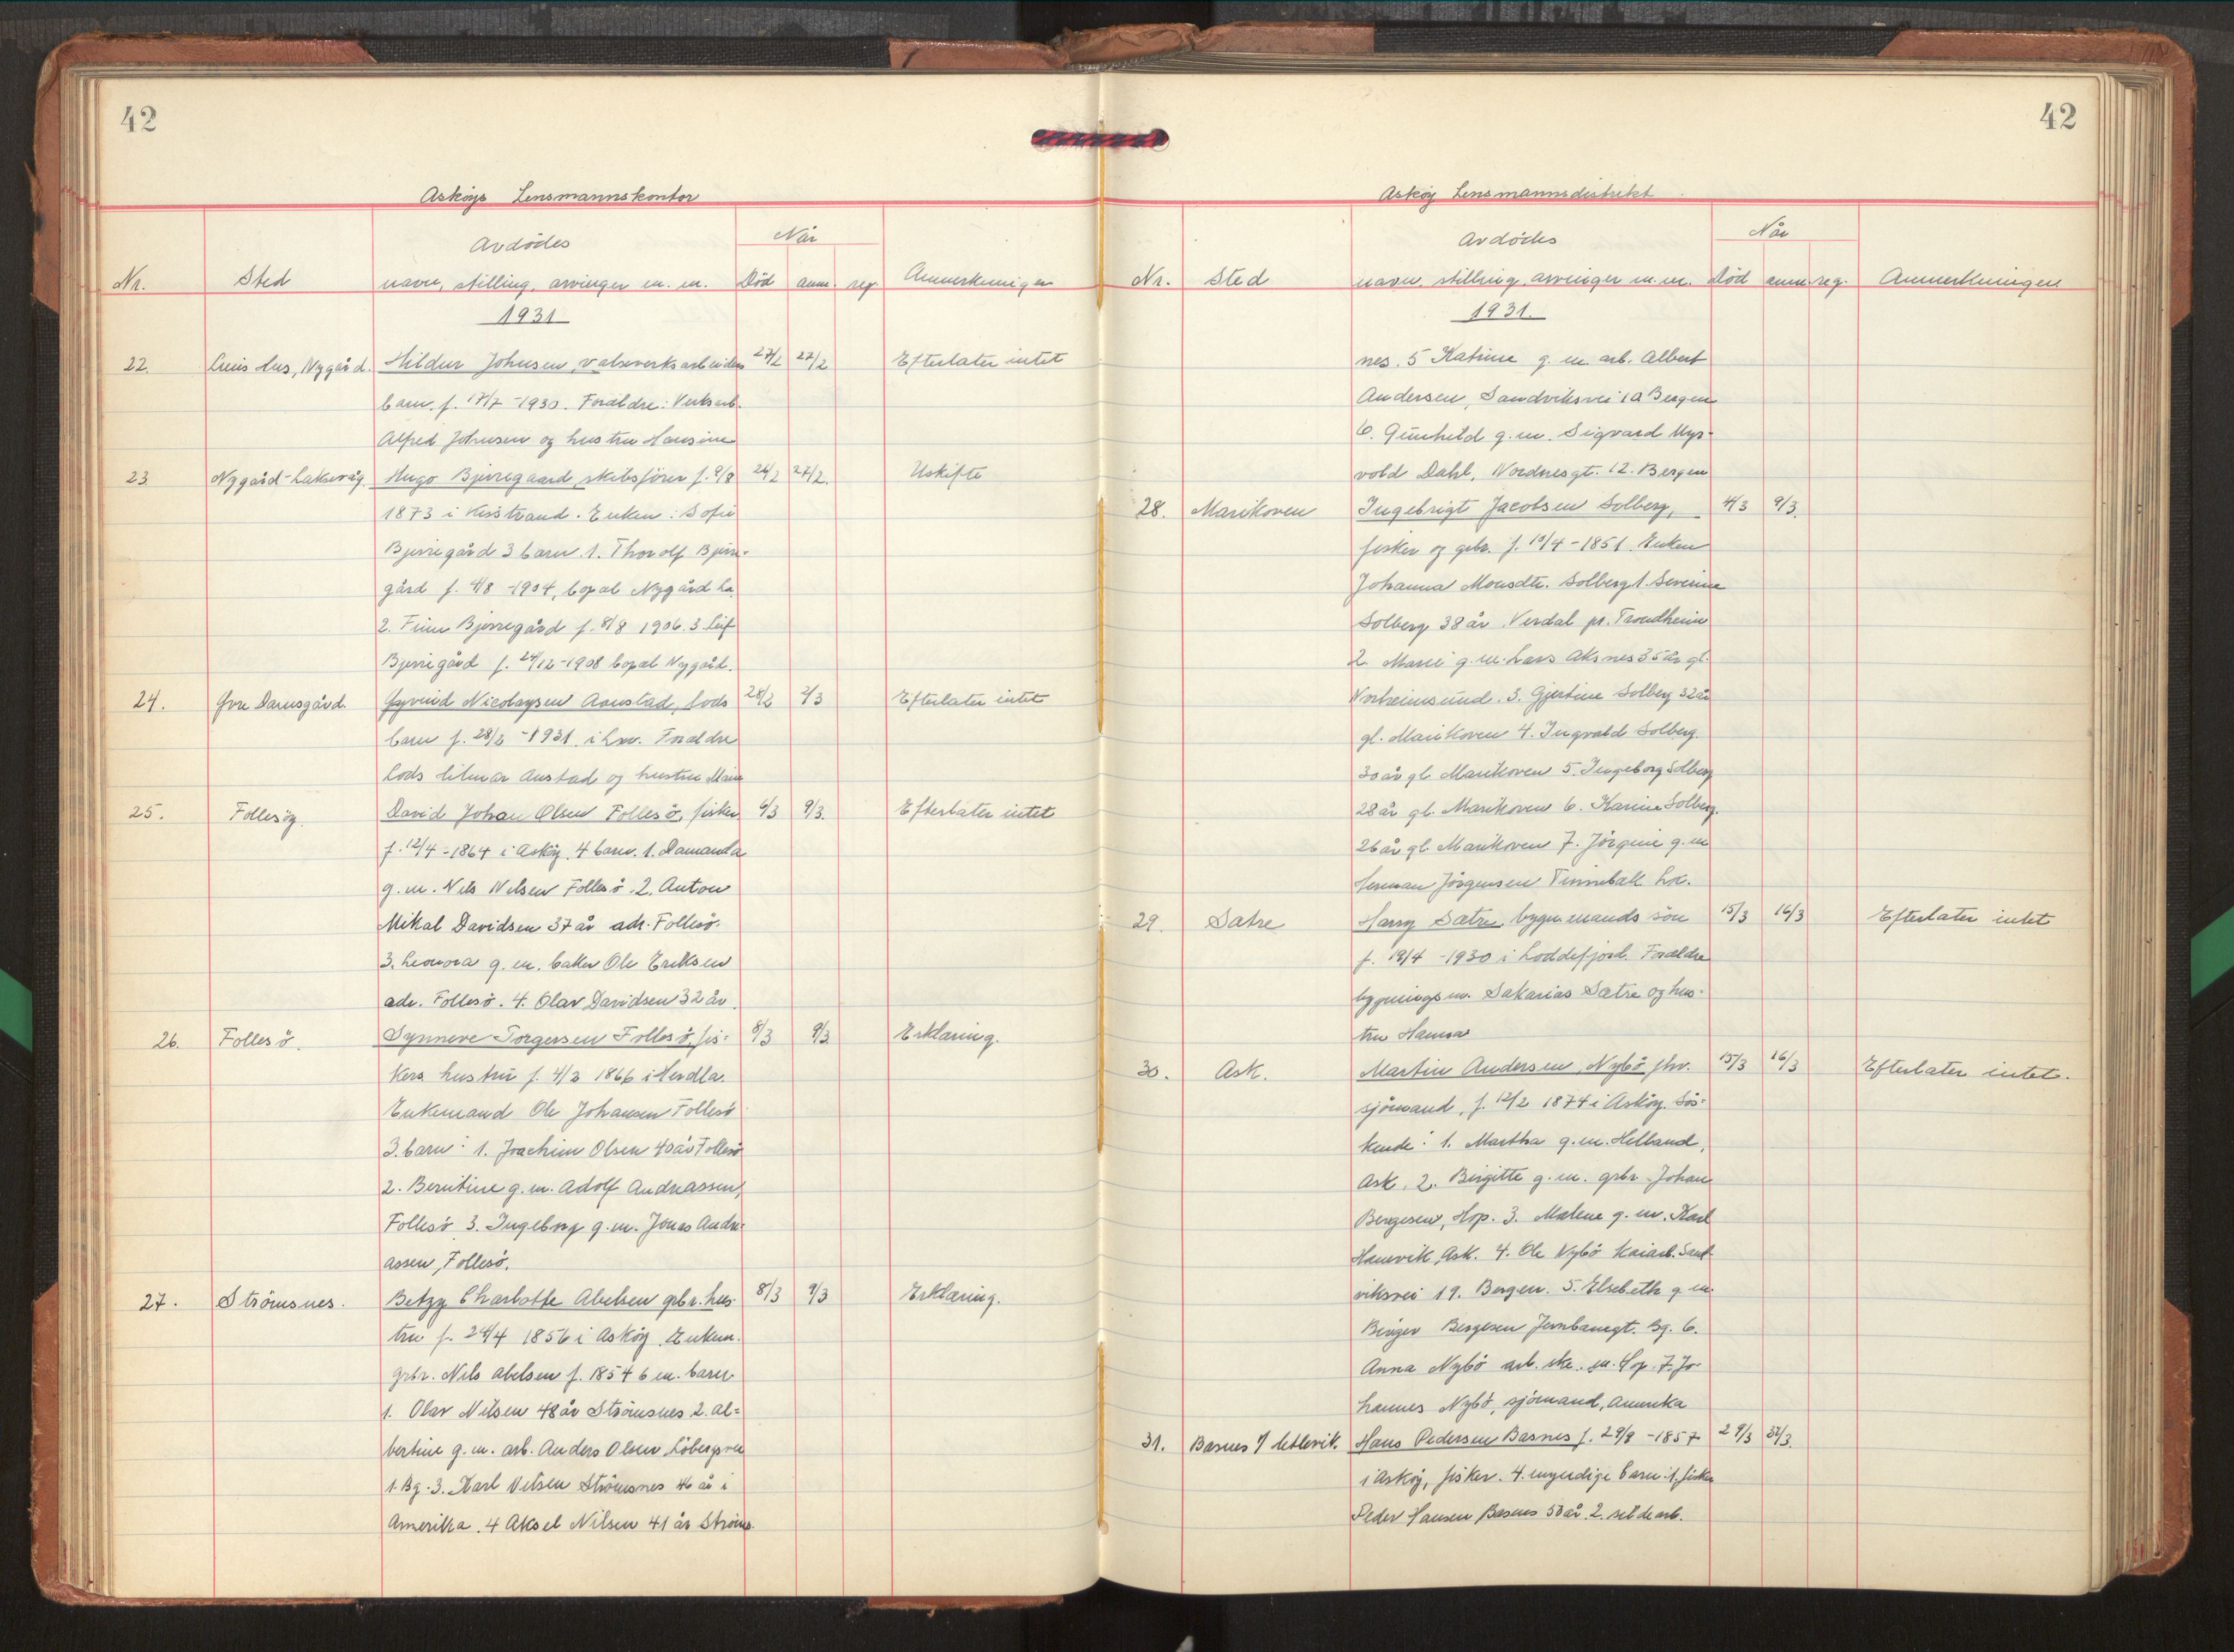 42
Askøys Lensmannskontor
Avdødes
Når
Nr. Sted navn, stilling, arvinger m. m. Død anm. reg. Anmerkninger
1931
22. hus, Nygård. Hildur Johnsen, valseverksarbeiders 27/2 27/2 Efterlater intet
barn f. 17/7 -1930. Foreldre: Verksarb.
Alfred Johnsen og hustru Hansine
23 Nygård-Laksevåg. Hugo Bjerregaard, skibsfører f. 9/8 24/2 27/2. Uskifte
1873 i Kistrand. Enken: Sofie
Bjerregård 3 barn. 1. Thorolf Bjerre-
gård f. 4/8 -1904, bopæl Nygård La.
2. Finn Bjerregård f. 8/8 1906. 3. Leif
Bjerregård f. 24/12-1908 bopæl Nygård.
24. Øvre Damsgård. Øyvind Nicolaysen Aunstad, lods 28/2 2/3 Efterlater intet
barn f. 28/2 -1931 i Lav. Foreldre
Lods Hilmar Austad og hustru Marie
25. Follesøy. David Johan Olsen Follesø, fisker 6/3 9/3. Efterlater intet
f. 12/4-1864 i Askøy. 4 barn. 1. Damanda
g. m. Nils Nilsen Follesø. 2. Anton
Mikal Davidsen 37 år adr. Follesø.
3. Leonora g. m. baker Ole Eriksen
adr. Follesø. 4. Olav Davidsen 32 år.
26. Follesø. Synneve Torgersen Follesø, fis- 8/3 9/3 Erklæring.
kers hustru f. 4/3 1866 i Herdla.
Enkemand Ole Johansen Follesø
3 barn: 1. Joachim Olsen 40 år Follesø
2. Berntine g. m. Adolf Andreassen,
Follesø 3. Ingeborg g. m. Jonas Andre-
assen, Follesø.
27. Strömsnes. Betzy Charlotte Abelsen gbr. hus- 8/3 9/3 Erklæring.
tru f. 24/4 1856 i Askøy. Enkem.
grbr. Nils Abelsen f. 1854 6 m. barn
1. Olav Nilsen 48 år Strömsnes 2. Al-
bertine g. m. arb. Anders Olsen Löbergsvei
1. Bg. 3. Karl Nilsen Strömsnes 46 år i
Amerika. 4 Aksel Nilsen 41 år Ströms-
42
Askøy Lensmannsdistrikt
Avdødes
Når
Nr. Sted navn, stilling, arvinger m. m. Død anm. reg. Anmerkninger
1931.
nes. 5 Katrine g. m. arb. Albert
Andersen, Sandviksvei 1a Bergen
6. Gunhild g. m. Sigvard Myr-
vold Dahl, Nordnesgt. 12. Bergen
28. Marikoven Ingebrigt Jacobsen Solberg, 4/3 9/3.
fisker og gbr. f. 10/4 -1851. Enken
Johanna Monsdtr. Solberg 1. Severine
Solberg 38 år Verdal pr. Trondheim
2. Marie g. m. Lars Aksnes 35 år gl.
Norheimsund. 3. Gjertine Solberg 32 år
gl. Marikoven 4. Ingvald Solberg.
30 år gl. Marikoven 5. Ingeborg Solberg
28 år gl. Marikoven 6. Karine Solberg.
26 år gl. Marikoven 7. Jörgine g. m.
Herman Jörgensen Tennebekk La.
29. Sætre Harry Sætre, bygn. mands sön 15/3 16/3 Efterlater intet
f. 19/4 -1930 i Loddefjord. Foreldre
bygningsm. Sakarias Sætre og hus-
tru Hanna
30. Ask. Martin Andersen, Nybö fhv. 15/3 16/3 Efterlater intet.
sjömand, f. 12/2 1874 i Askøy. Sös-
kende: 1. Martha g. m. Helland,
Ask, 2. Birgitte g. m. grbr. Johan
Bergesen, Hop. 3. Malene g. m. Karl
Hanevik, Ask. 4. Ole Nybö kaiarb. Sand-
viksvei 19. Bergen. 5. Elsebeth g. m.
Birger Bergesen Jernbanegt. Bg. 6.
Anna Nybö arb. ske. 7. Jo-
hannes Nybö, sjömand, Amerika
31. Basnes i/ Litlevik. Hans Pedersen Basnes f. 29/8 -1857 29/3 31/3.
i Askøy, fisker. 4. myndige barn: 1. fisker
Peder Hansen Basnes 53 år. 2. sildearb.